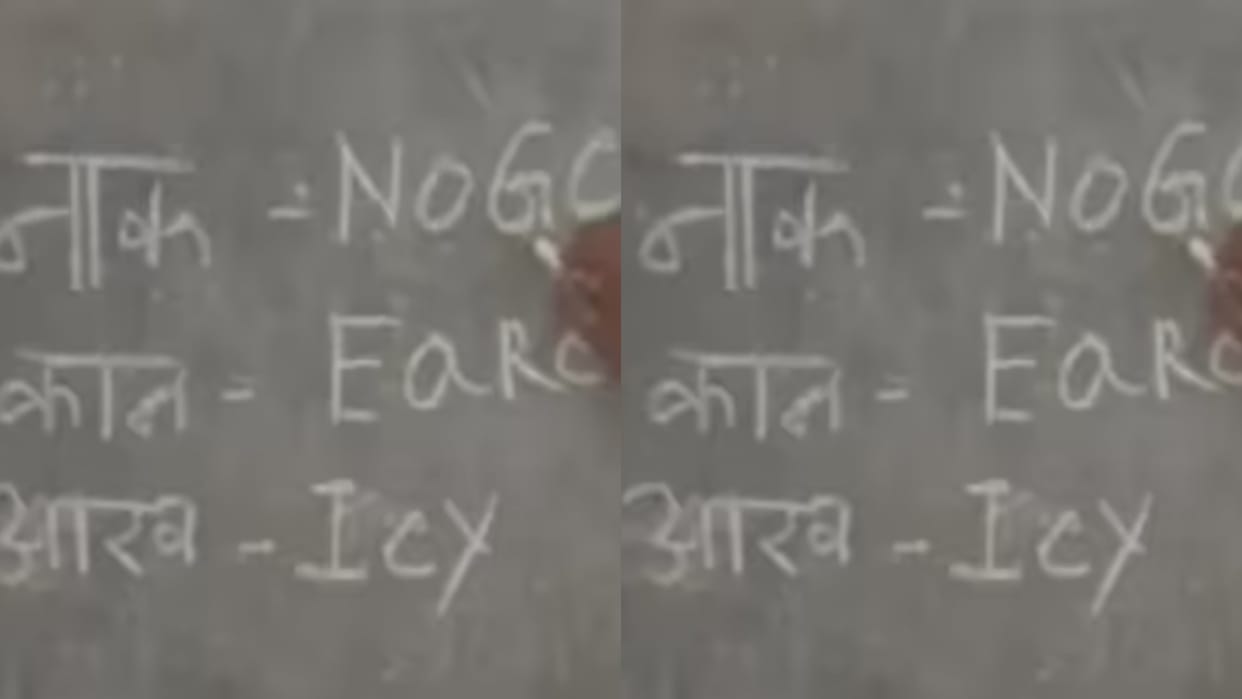 नाक - NOGC
कान - EaRC
आरव - IcY
नाक - NOGC
कान - EaRC
आरव - IcY